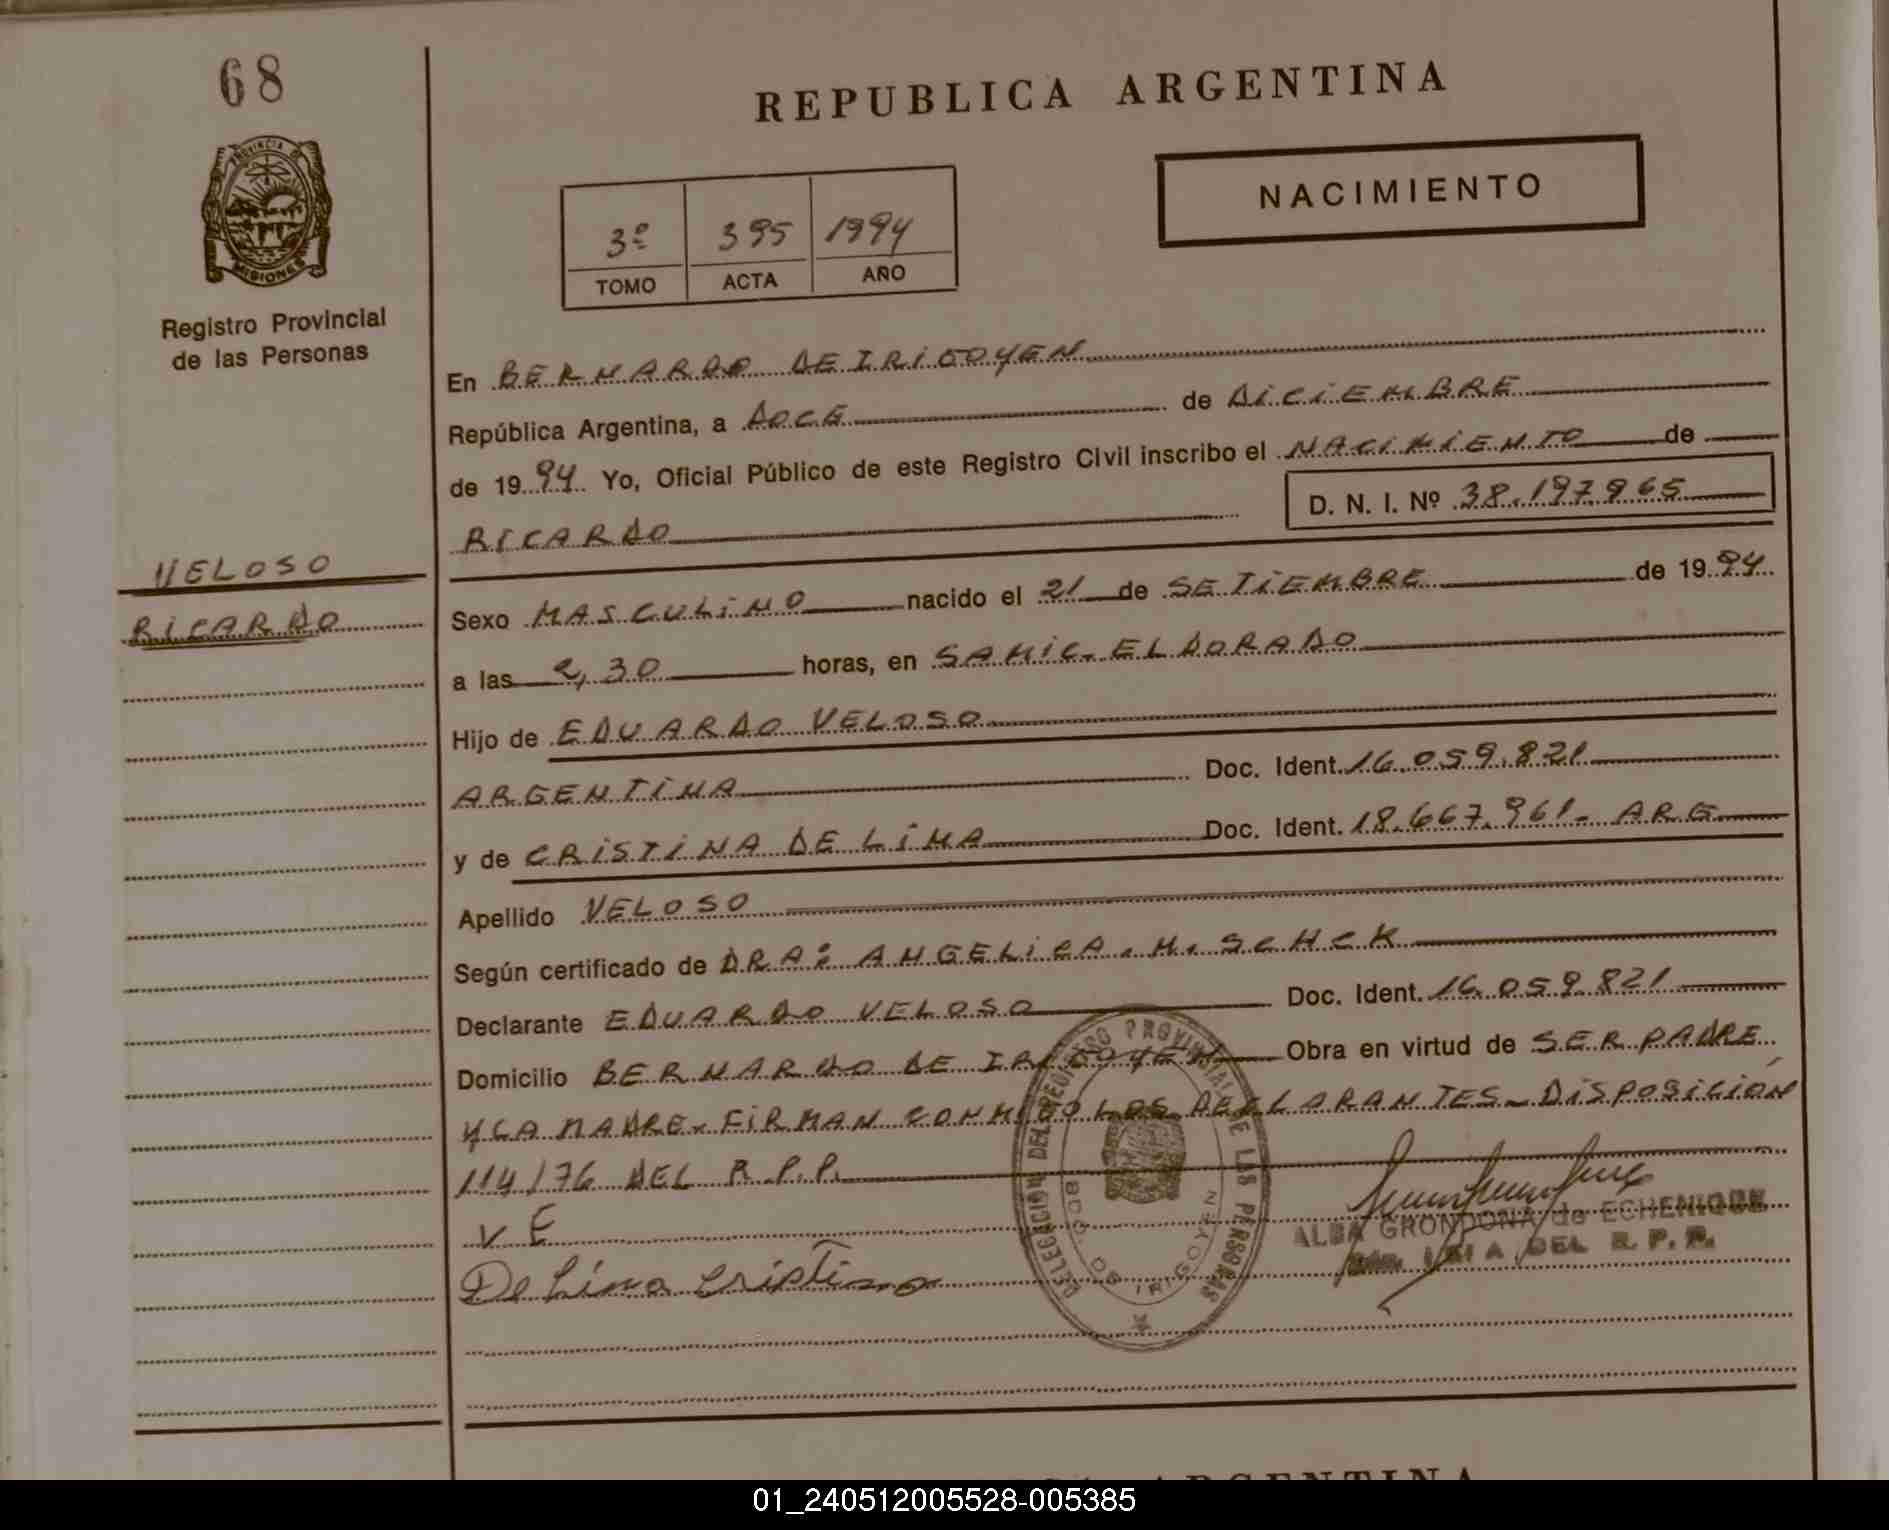 68
PROVINCIA D
MISIONES
Registro Provincial
de las Personas
VELOSO
RICARDO
REPUBLICA ARGENTINA
NACIMIENTO
3º 395 1994
TOMO ACTA AÑO
En BERNARDO DE IRIGOYEN
República Argentina, a DOCE de DICIEMBRE
de 1994 Yo, Oficial Público de este Registro Civil inscribo el NACIMIENTO de
RICARDO D. N. I. Nº 38.197.965
Sexo MASCULINO nacido el 21 de SETIEMBRE de 1994
a las 2,30 horas, en SAMIC-ELDORADO
Hijo de EDUARDO VELOSO
ARGENTINA Doc. Ident. 16.059.821
y de CRISTINA DE LIMA Doc. Ident. 18.667.961- ARG
Apellido VELOSO
Según certificado de DRA: ANGELICA. M. SCHCK
Declarante EDUARDO VELOSO Doc. Ident. 16.059.821
Domicilio BERNARDO DE IRIGOYEN Obra en virtud de SER PADRE
Y LA MADRE- FIRMAN CONMIGO LOS DECLARANTES- DISPOSICIÓN
114/76 DEL R.P.P.
V E
De Lima Cristina
DELEGACION DEL REGISTRO PROVINCIAL DE LAS PERSONAS
BDO. DE IRIGOYEN
ALBA GRONDONA de ECHENIQUE
DEL R. P. P.
ARGENTINA
01_240512005528-005385